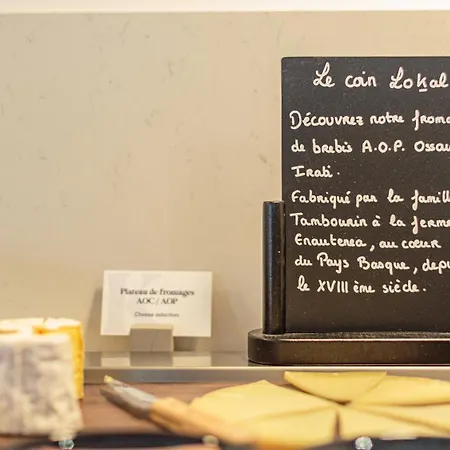 Le coin Lokal
Découvrez notre froma
de brebis A.O.P. Ossau
Irati.
Fabriqué par la famill
Tambourin à la ferme
Enautenea, au cœur
du Pays Basque, depu
le XVIII ème siècle.
Plateau de fromages
AOC/AOP
Cheese selection